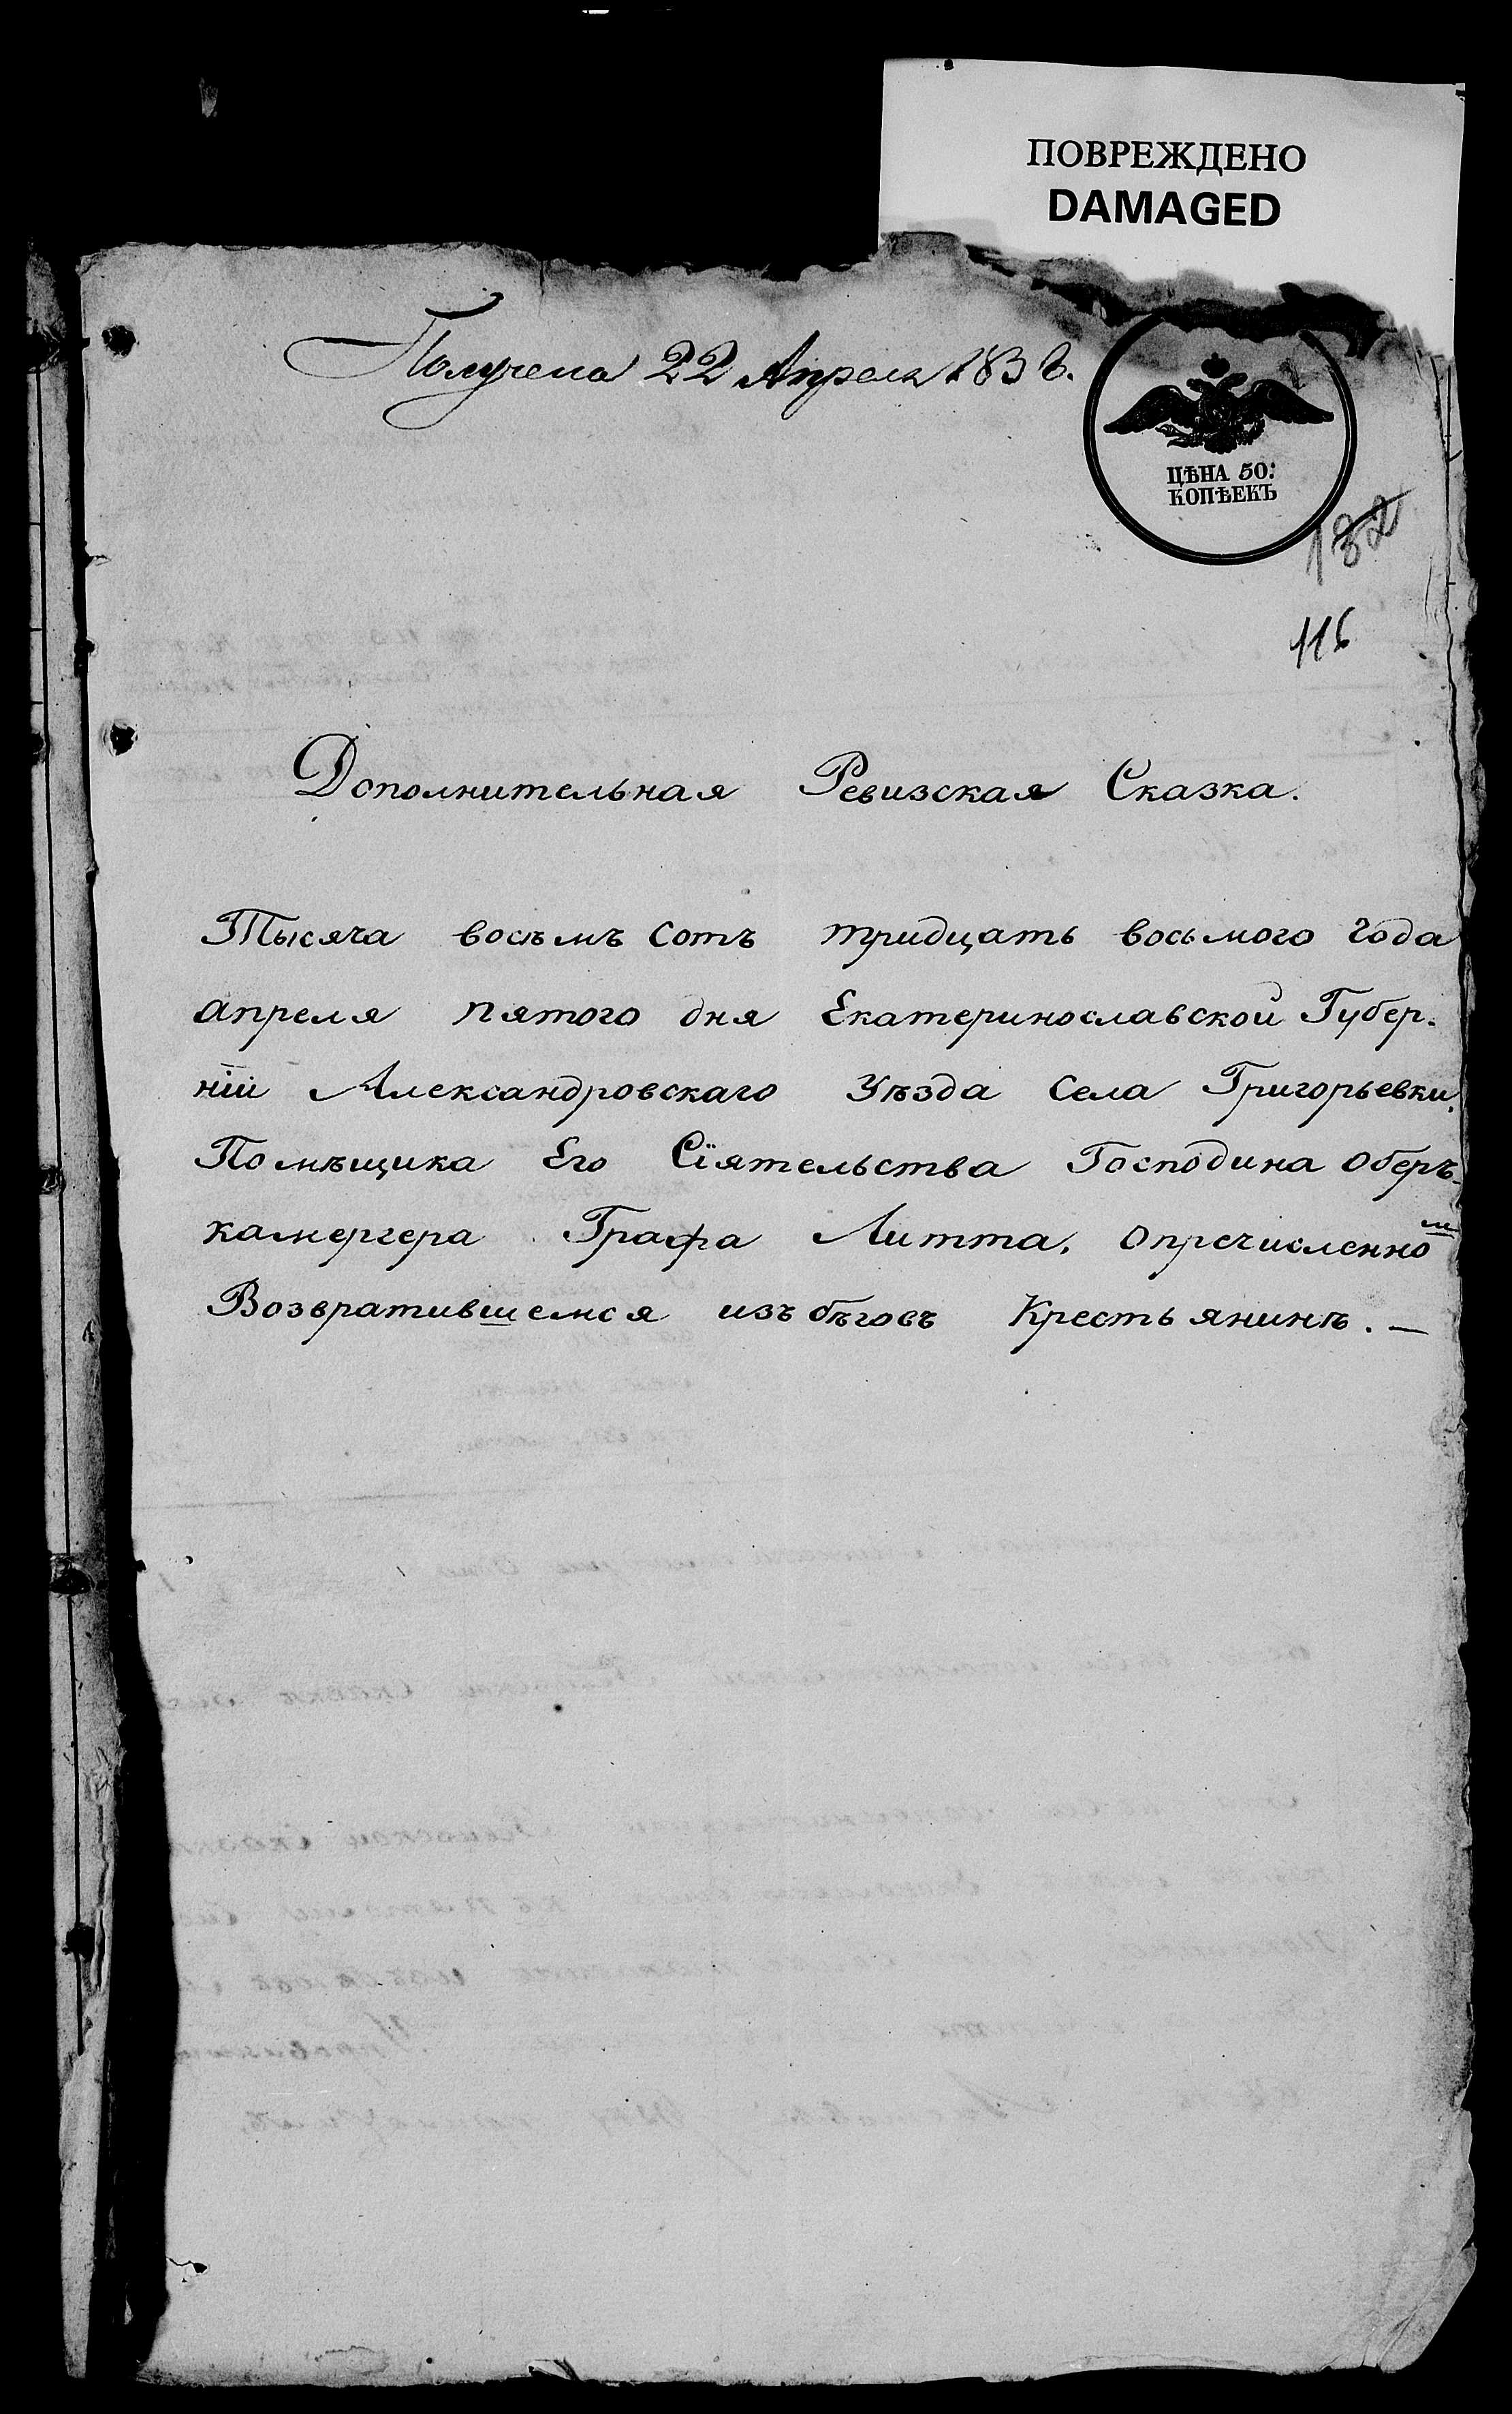 ПОВРЕЖДЕНО
DAMAGED
Получена 22 Апреля 1838.
ЦѢНА 50:
КОПѢЕКЪ
132
116
Дополнительная Ревизская Сказка.
Тысяча восѣмъ сотъ тридцать восьмого года
апреля пятого дня Екатеринославской Губер.
нїи Александровскаго Уѣзда села Григорьевки.
Помѣщика Его Сїятельства Господина оберъ-
камергера Графа Литта. опречисленном
Возвратившемся изъ бѣговъ Крестьянинѣ. —